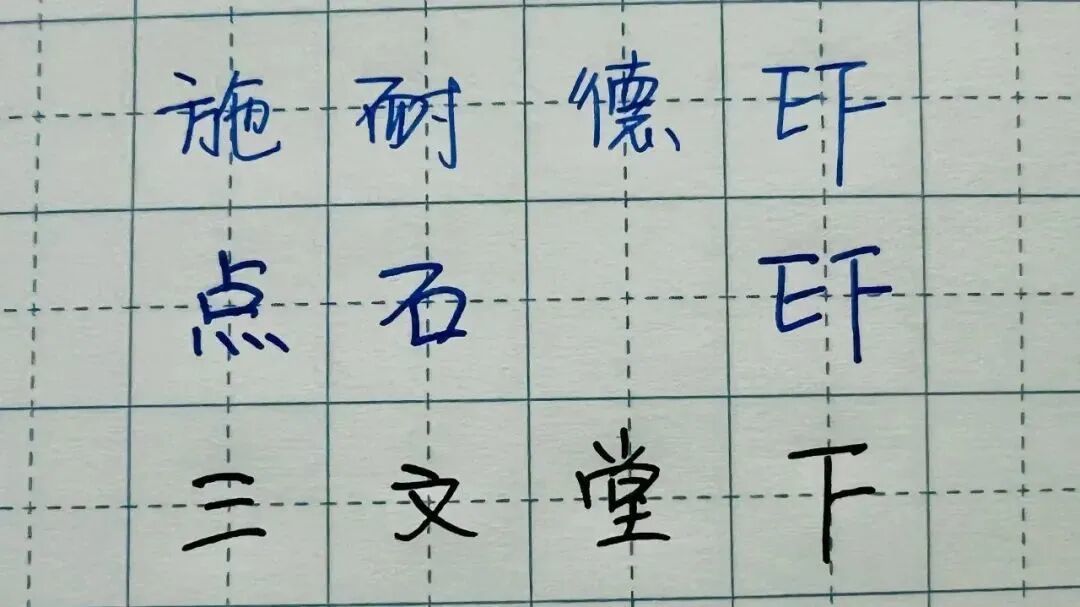 施耐德 EF
点石 EF
三文堂 F